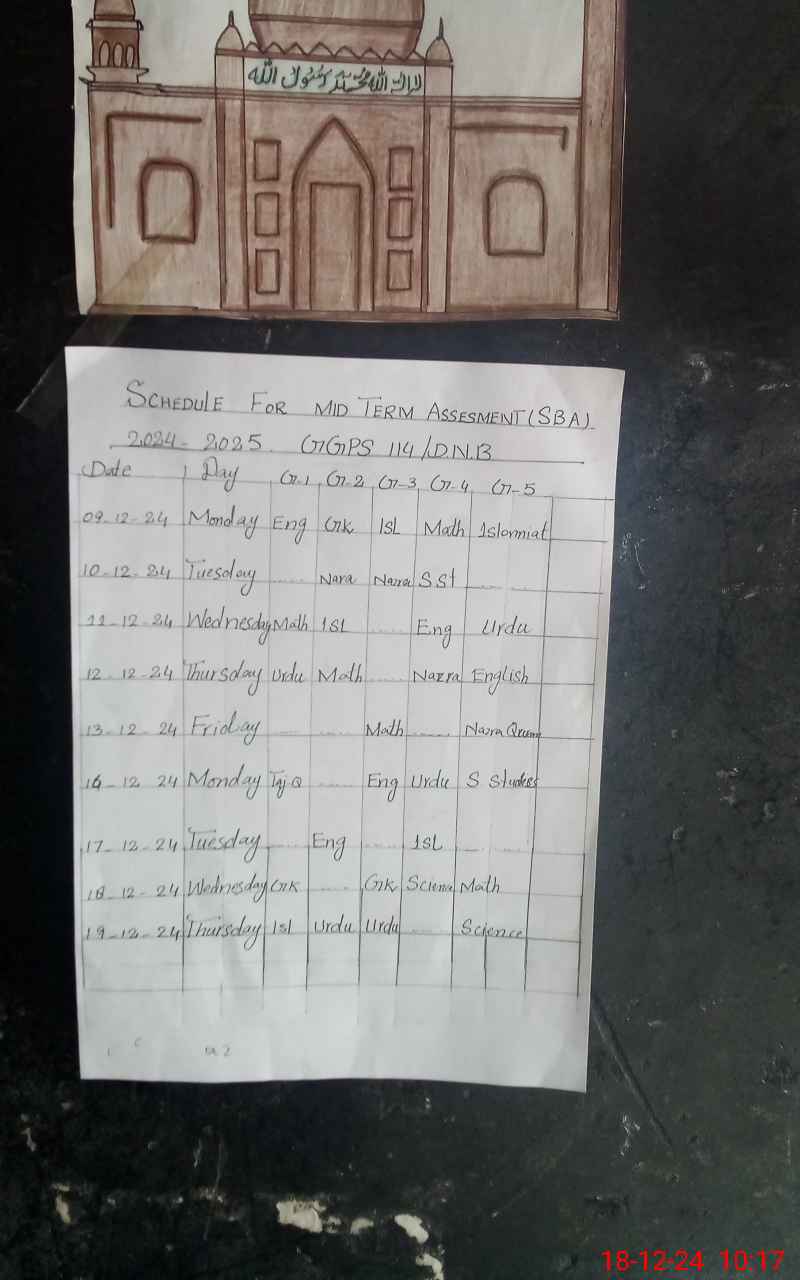 لا اله الا الله محمد رسول الله
SCHEDULE FOR MID TERM ASSESMENT (SBA)
2024- 2025. GGPS 114/D.N.B
Date Day G-1 G-2 G-3 G-4 G-5
09-12-24 Monday Eng GK ISL Math Islamiat
10-12-24 Tuesday ...... Nara Nazra SSt ...... ......
11-12-24 Wednesday Math ISL ...... Eng Urdu
12-12-24 Thursday Urdu Math ...... Nazra English
13-12-24 Friday ...... ...... Math ...... Nazra
16-12-24 Monday Taj-Q ...... Eng Urdu S Studees
17-12-24 Tuesday ...... Eng ...... ISL ...... ......
18-12-24 Wednesday GK ...... GK Science Math
19-12-24 Thursday Isl Urdu Urdu ...... Science
18-12-24 10:17